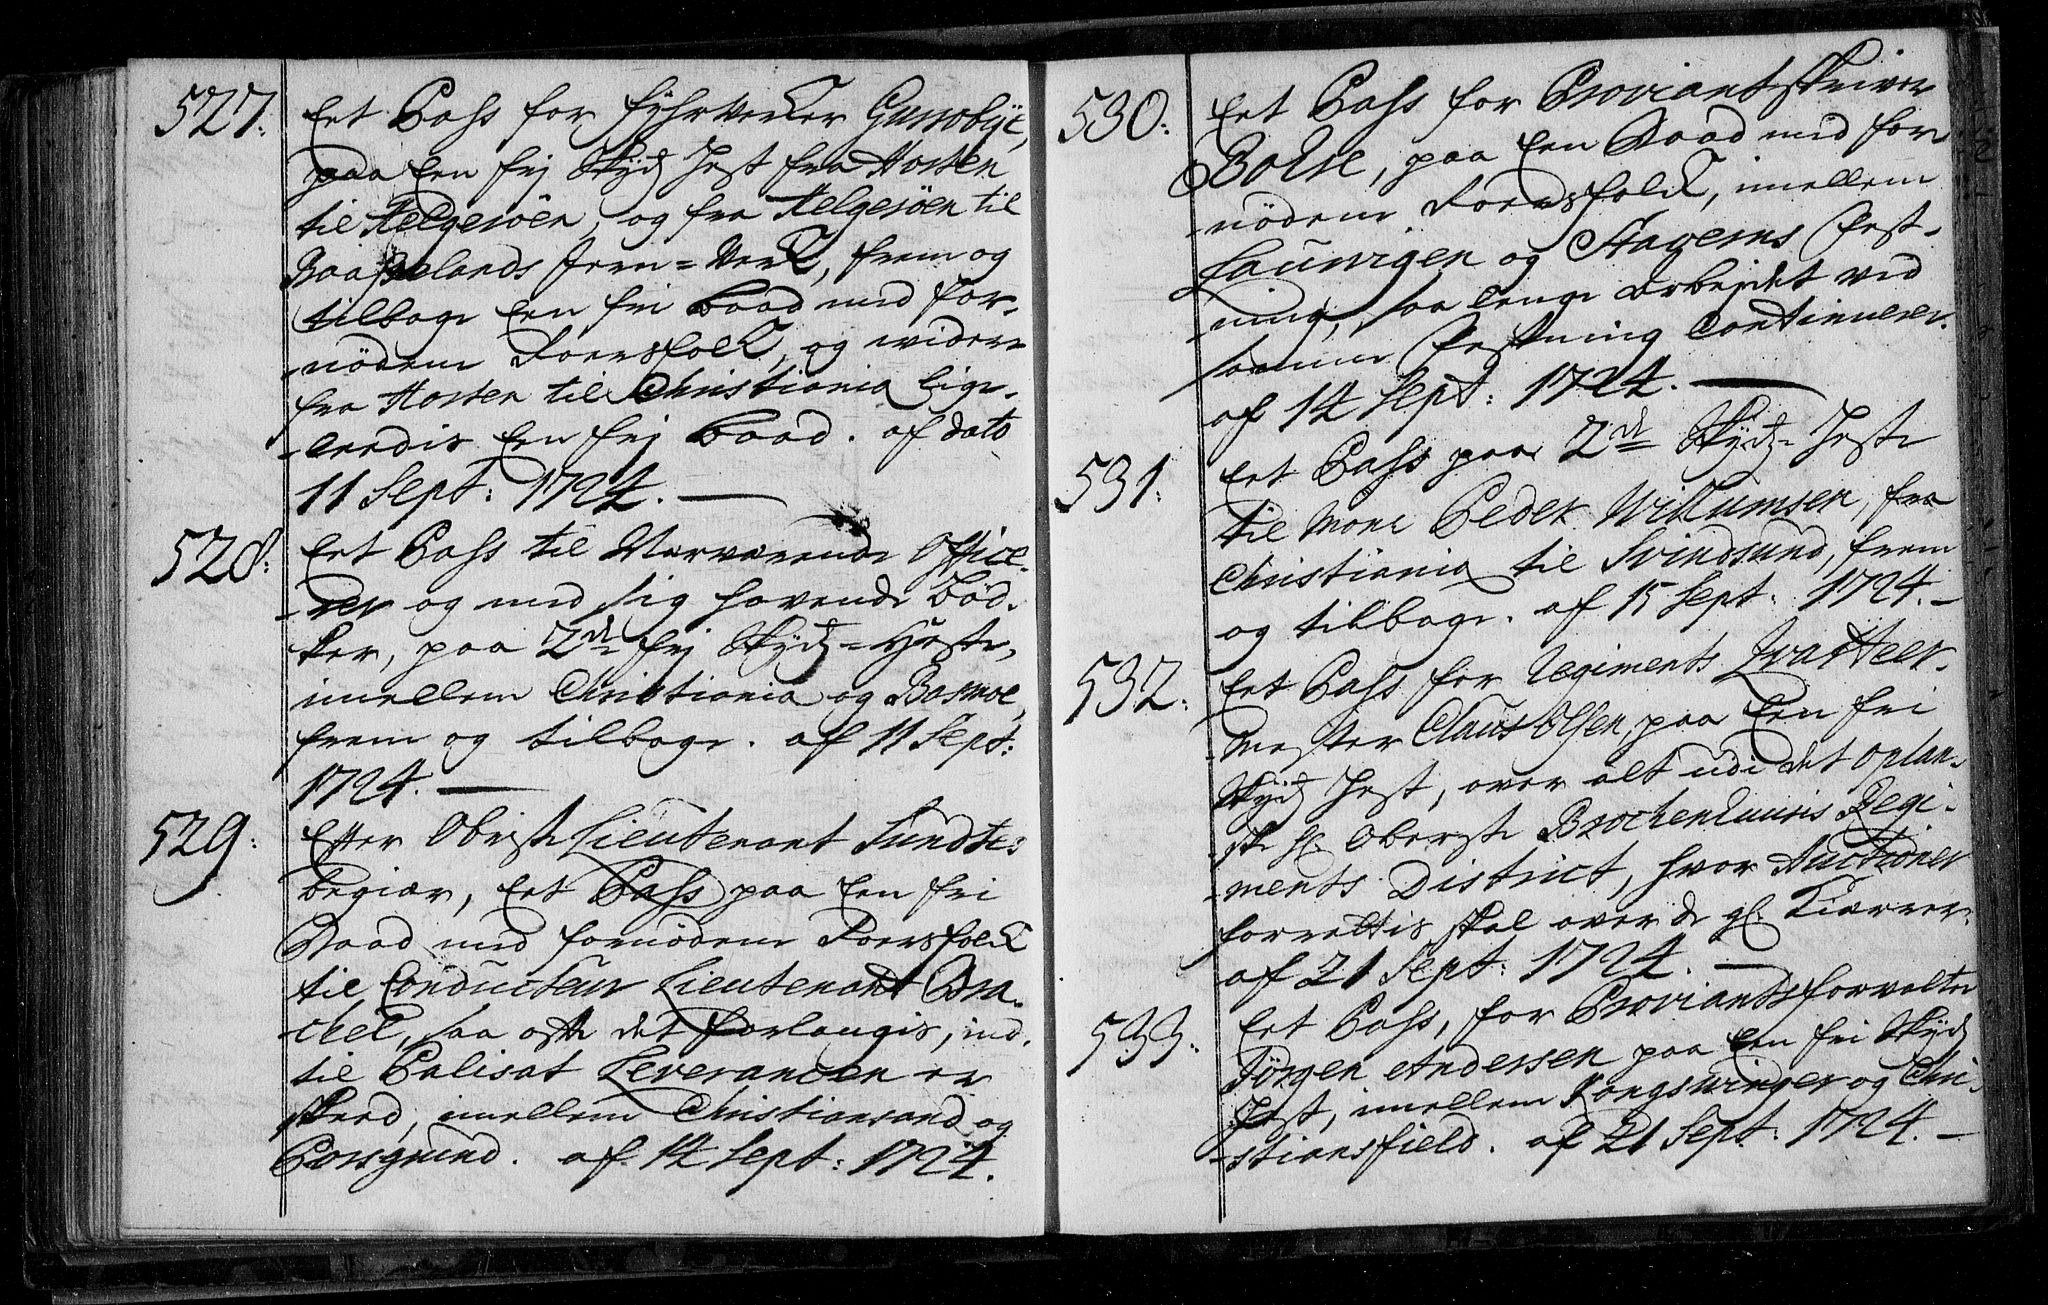 527. Eet Pass for fyhrverker Gunsobye,
paa een frj Skyds Hest fra Horten
til Helgeröen, og fra Helgeröen til
Baaselands Jern=Verk, frem og
tilbage een fri Baad med for-
-nödene Roersfolk, og widere
fra Horten til Christiania lige-
-leedis een frj Baad. af dato
11 Sept: 1724.
528. Eet Pass til Nærværende Office-
-rer og med sig havende Böd-
ker, paa 2de frj Skyds=Heste,
imellem Christiania og Basmoe,
frem og tilbage. af 11 Sept:
1724.
529. Efter Obriste Lieutenant Sundts
begiær, eet Pass paa een fri
Baad med fornödene Roersfolk
til Conducteur Lieutenant Dra-
chel, saa ofte det forlangis, ind-
til Palisat Leverancen er
skeed, imellem Christiansand og
Porsgrund. af 14 Sept: 1724.
530. Eet Pass for Proviantskriver
Bolse, paa een Baad med for-
-nödene Roersfolk, imellem
Laurvigen og Stagverns Fest-
-ning, saa lenge arbejdet ved
samme Festning Continuerer.
af 14 Sept: 1724.
531. Eet Pass paa 2de Skyds=Heste
til Monr Peder Willumsen, fra
Christiania til Svindsund, frem
og tilbage. af 15 Sept: 1724.
532. Eet Pass for Regiments Qvarteer-
-Mester Claus Olsen, paa een fri
Skyds Hest, over alt udi det Oplan-
-ske Hr. Oberste Brochenhuusis Regi-
-ments District, hvor Auctioner
forrettis skal over de gl. Kiærrer.
af 21 Sept: 1724.
533. Eet Pass, for Proviantsforvalter
Jörgen Andersen paa een fri Skyds
Hest, imellem Kongswinger og Chri-
-stiansfield. af 21 Sept: 1724.